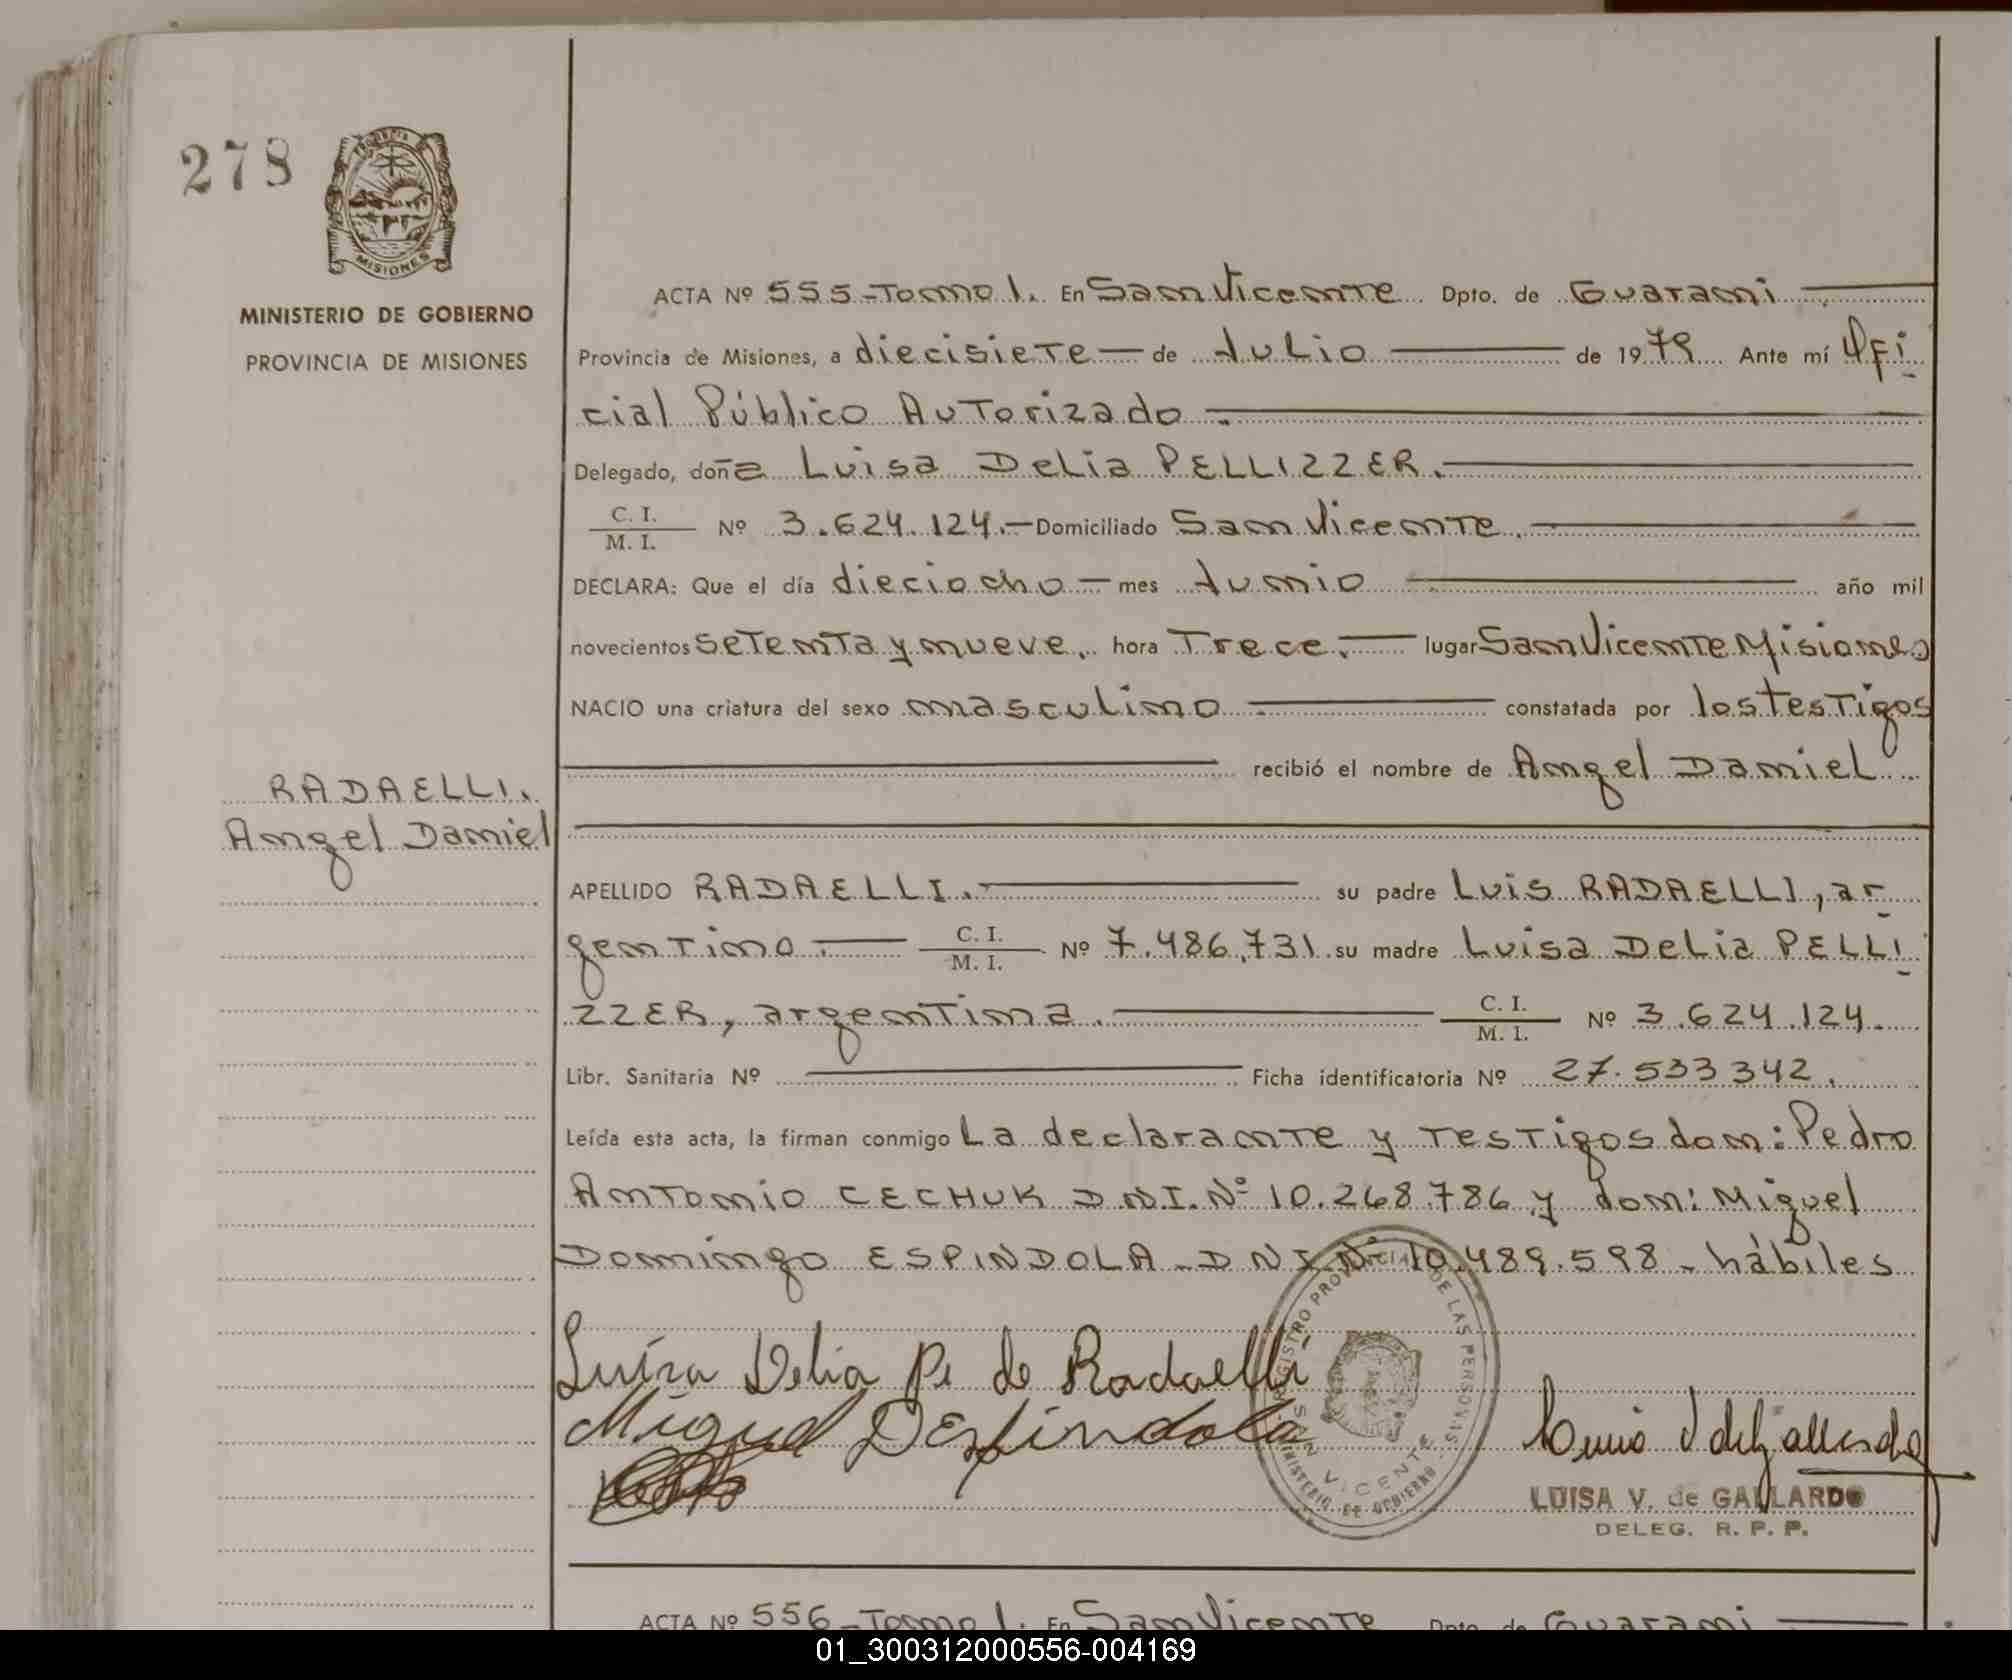 278
PROVINCIA
MISIONES
MINISTERIO DE GOBIERNO
PROVINCIA DE MISIONES
RADAELLI.
Angel Daniel
ACTA Nº 555-Tomo 1. En San Vicente Dpto. de Guarani
Provincia de Misiones, a diecisiete de Julio de 1979 Ante mí Ofi
cial Público Autorizado.
Delegado, doña Luisa Delia PELLIZZER.
C. I. / M. I. Nº 3.624.124.- Domiciliado San Vicente.
DECLARA: Que el día dieciocho mes Junio año mil
novecientos setenta y nueve. hora Trece. lugar San Vicente Misiones
NACIO una criatura del sexo masculino constatada por los testigos
recibió el nombre de Angel Daniel
APELLIDO RADAELLI. su padre Luis RADAELLI, ar
gentino C. I. / M. I. Nº 7.486.731 su madre Luisa Delia PELLI
ZZER, argentina. C. I. / M. I. Nº 3.624.124.
Libr. Sanitaria Nº Ficha identificatoria Nº 27.533342.
Leída esta acta, la firman conmigo La declarante y testigos don: Pedro
Antonio CECHUK D.N.I. Nº 10.268.786 y don: Miguel
Domingo ESPINDOLA - D N I Nº 10.489.598 - hábiles
Luisa Delia P. de Radaelli
Miguel D Espindola
REGISTRO PROVINCIAL DE LAS PERSONAS
SAN VICENTE
MINISTERIO DE GOBIERNO
LUISA V. de GALLARDO
DELEG. R. P. P.
ACTA Nº 556-Tomo 1. En San Vicente Dpto. de Guarani
01_300312000556-004169